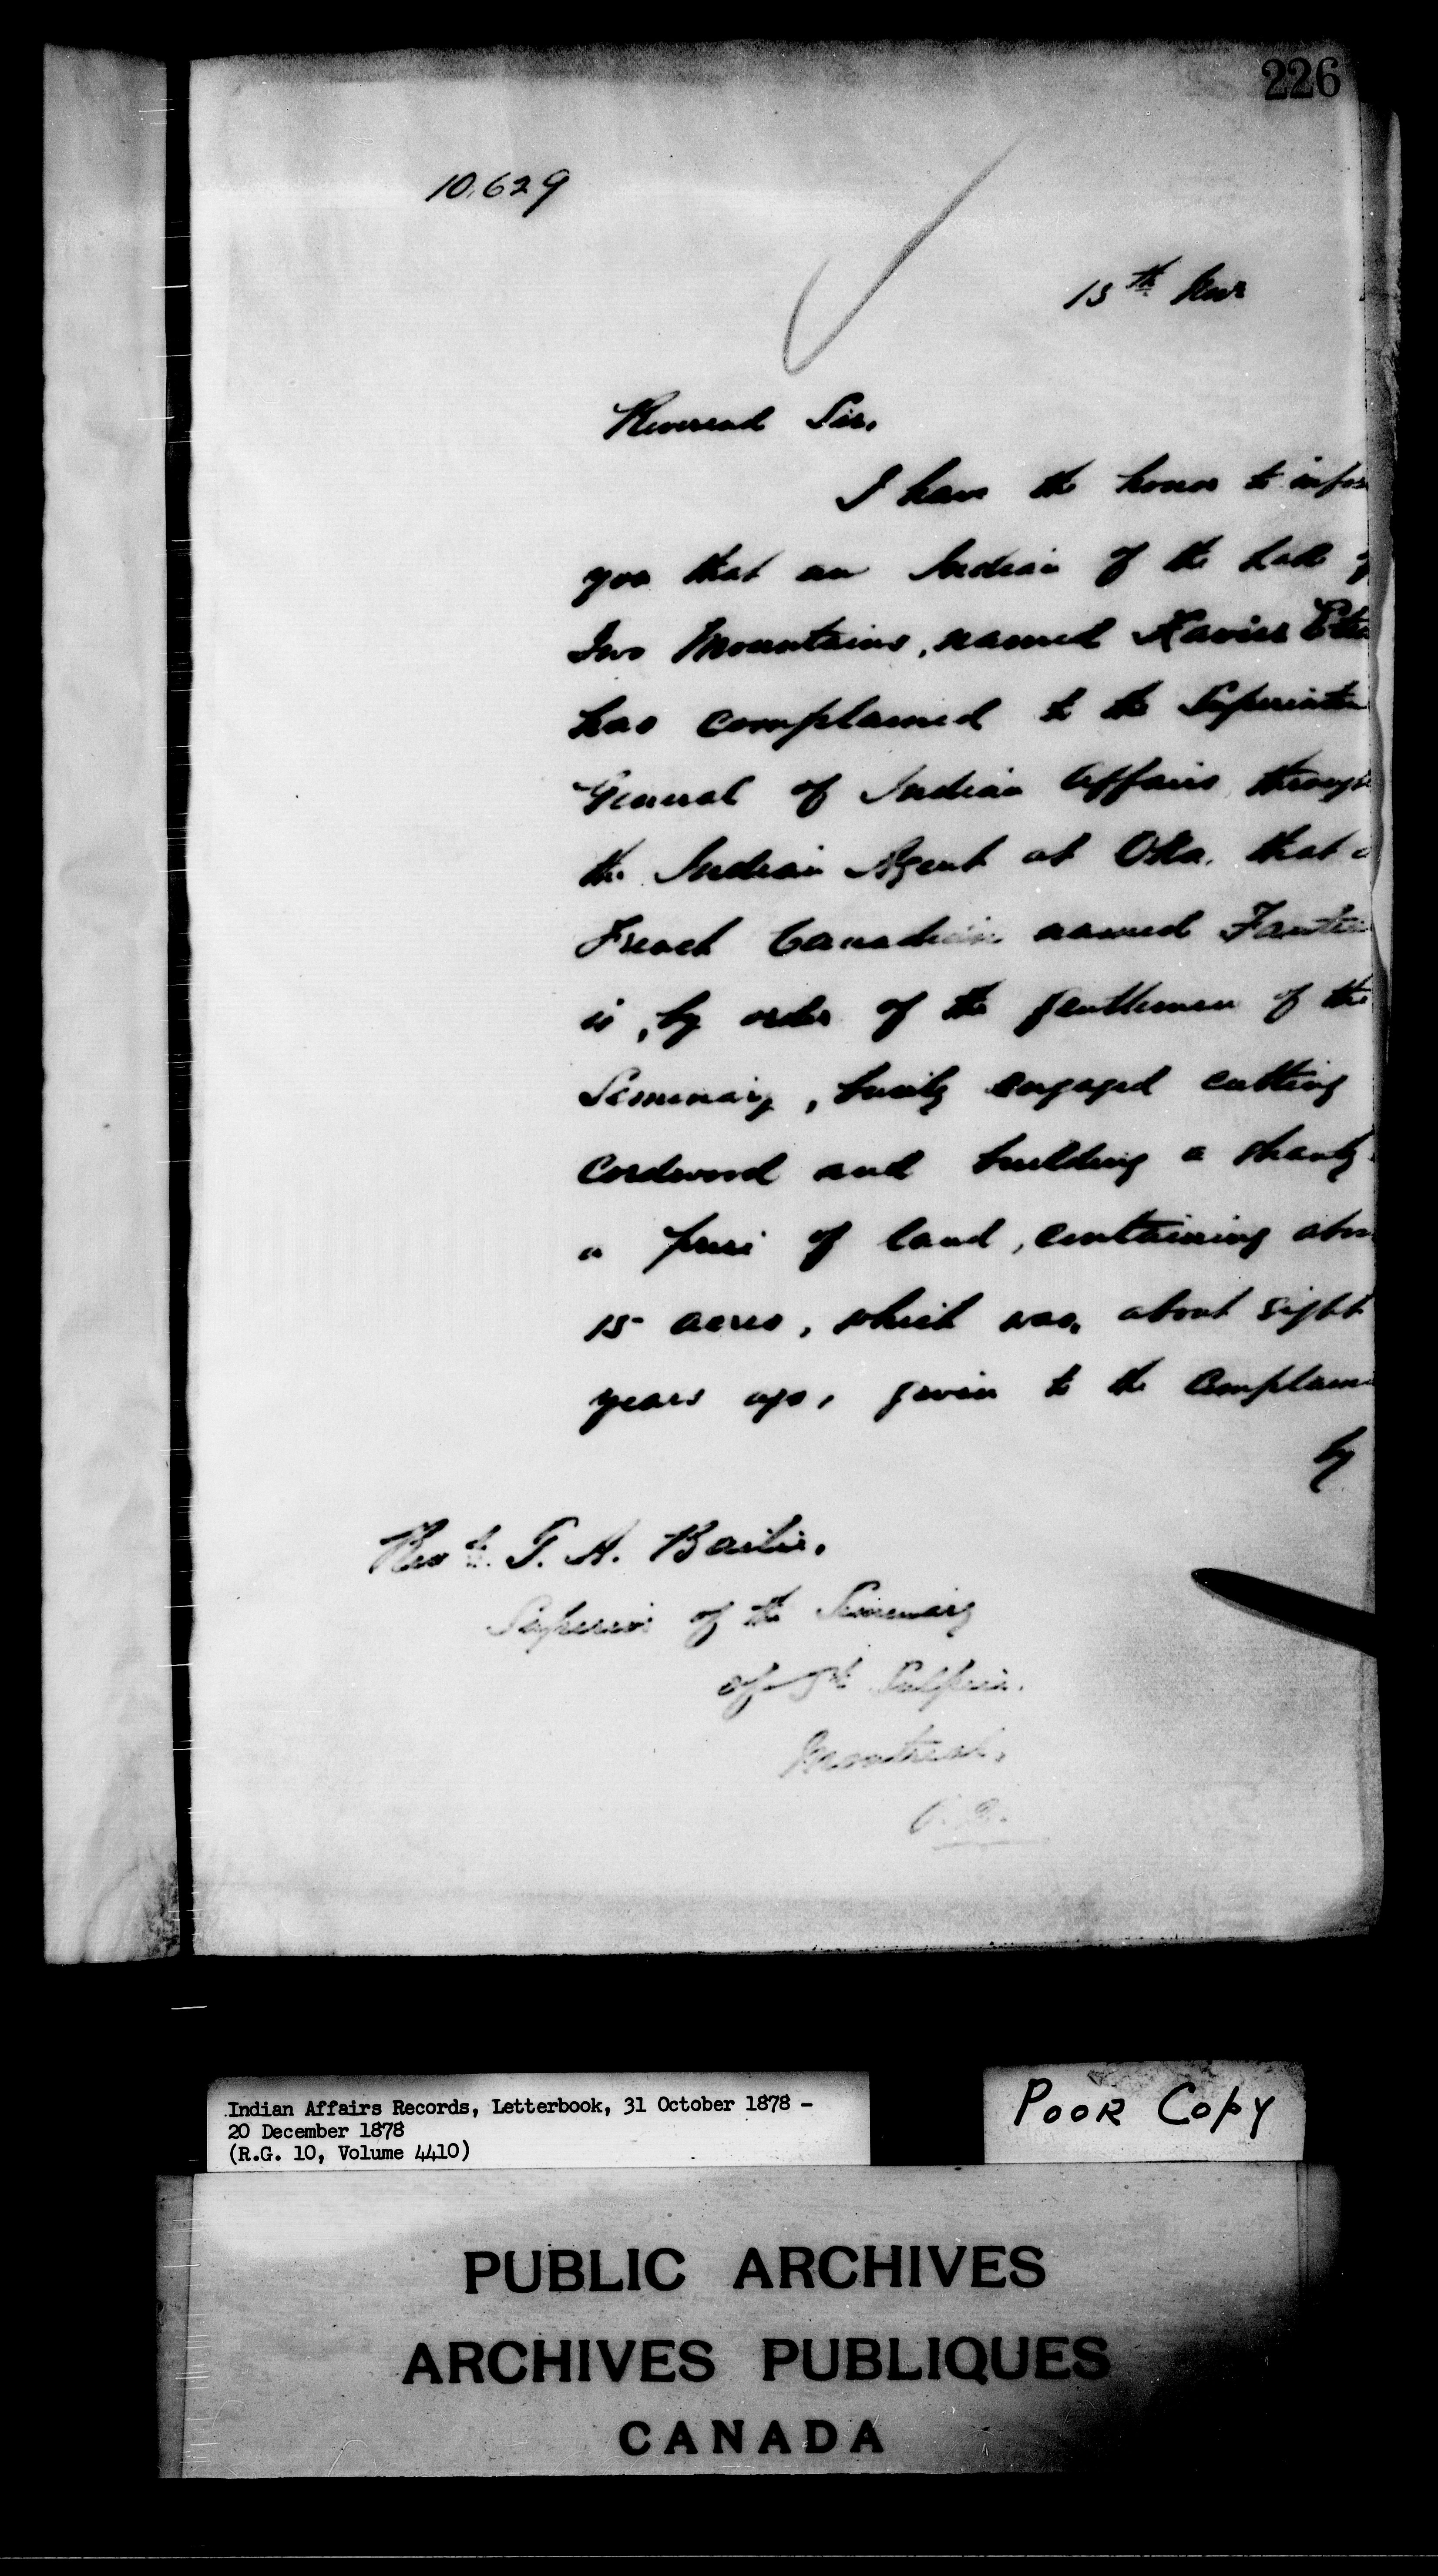 226
10.629
15th Nov
Reverend Sir,
I have the honor to infor
you that an Indian of the Lake
Two Mountains, named Xavier
has complained to the Superinten
General of Indian Affairs, through
the Indian Agent at Oka, that a
French Canadian named
is, by order of the gentlemen of the
Seminary, busily engaged cutting
Cordwood and building a shanty
a piece of land, containing abou
15 acres, which was, about eight
years ago, given to the Complain
by
Revd. A. Baile,
Superior of the Seminary
of St Sulpice.
Montreal,
P.Q.
Indian Affairs Records, Letterbook, 31 October 1878 –
20 December 1878
(R.G. 10, Volume 4410)
POOR COPY
PUBLIC ARCHIVES
ARCHIVES PUBLIQUES
CANADA